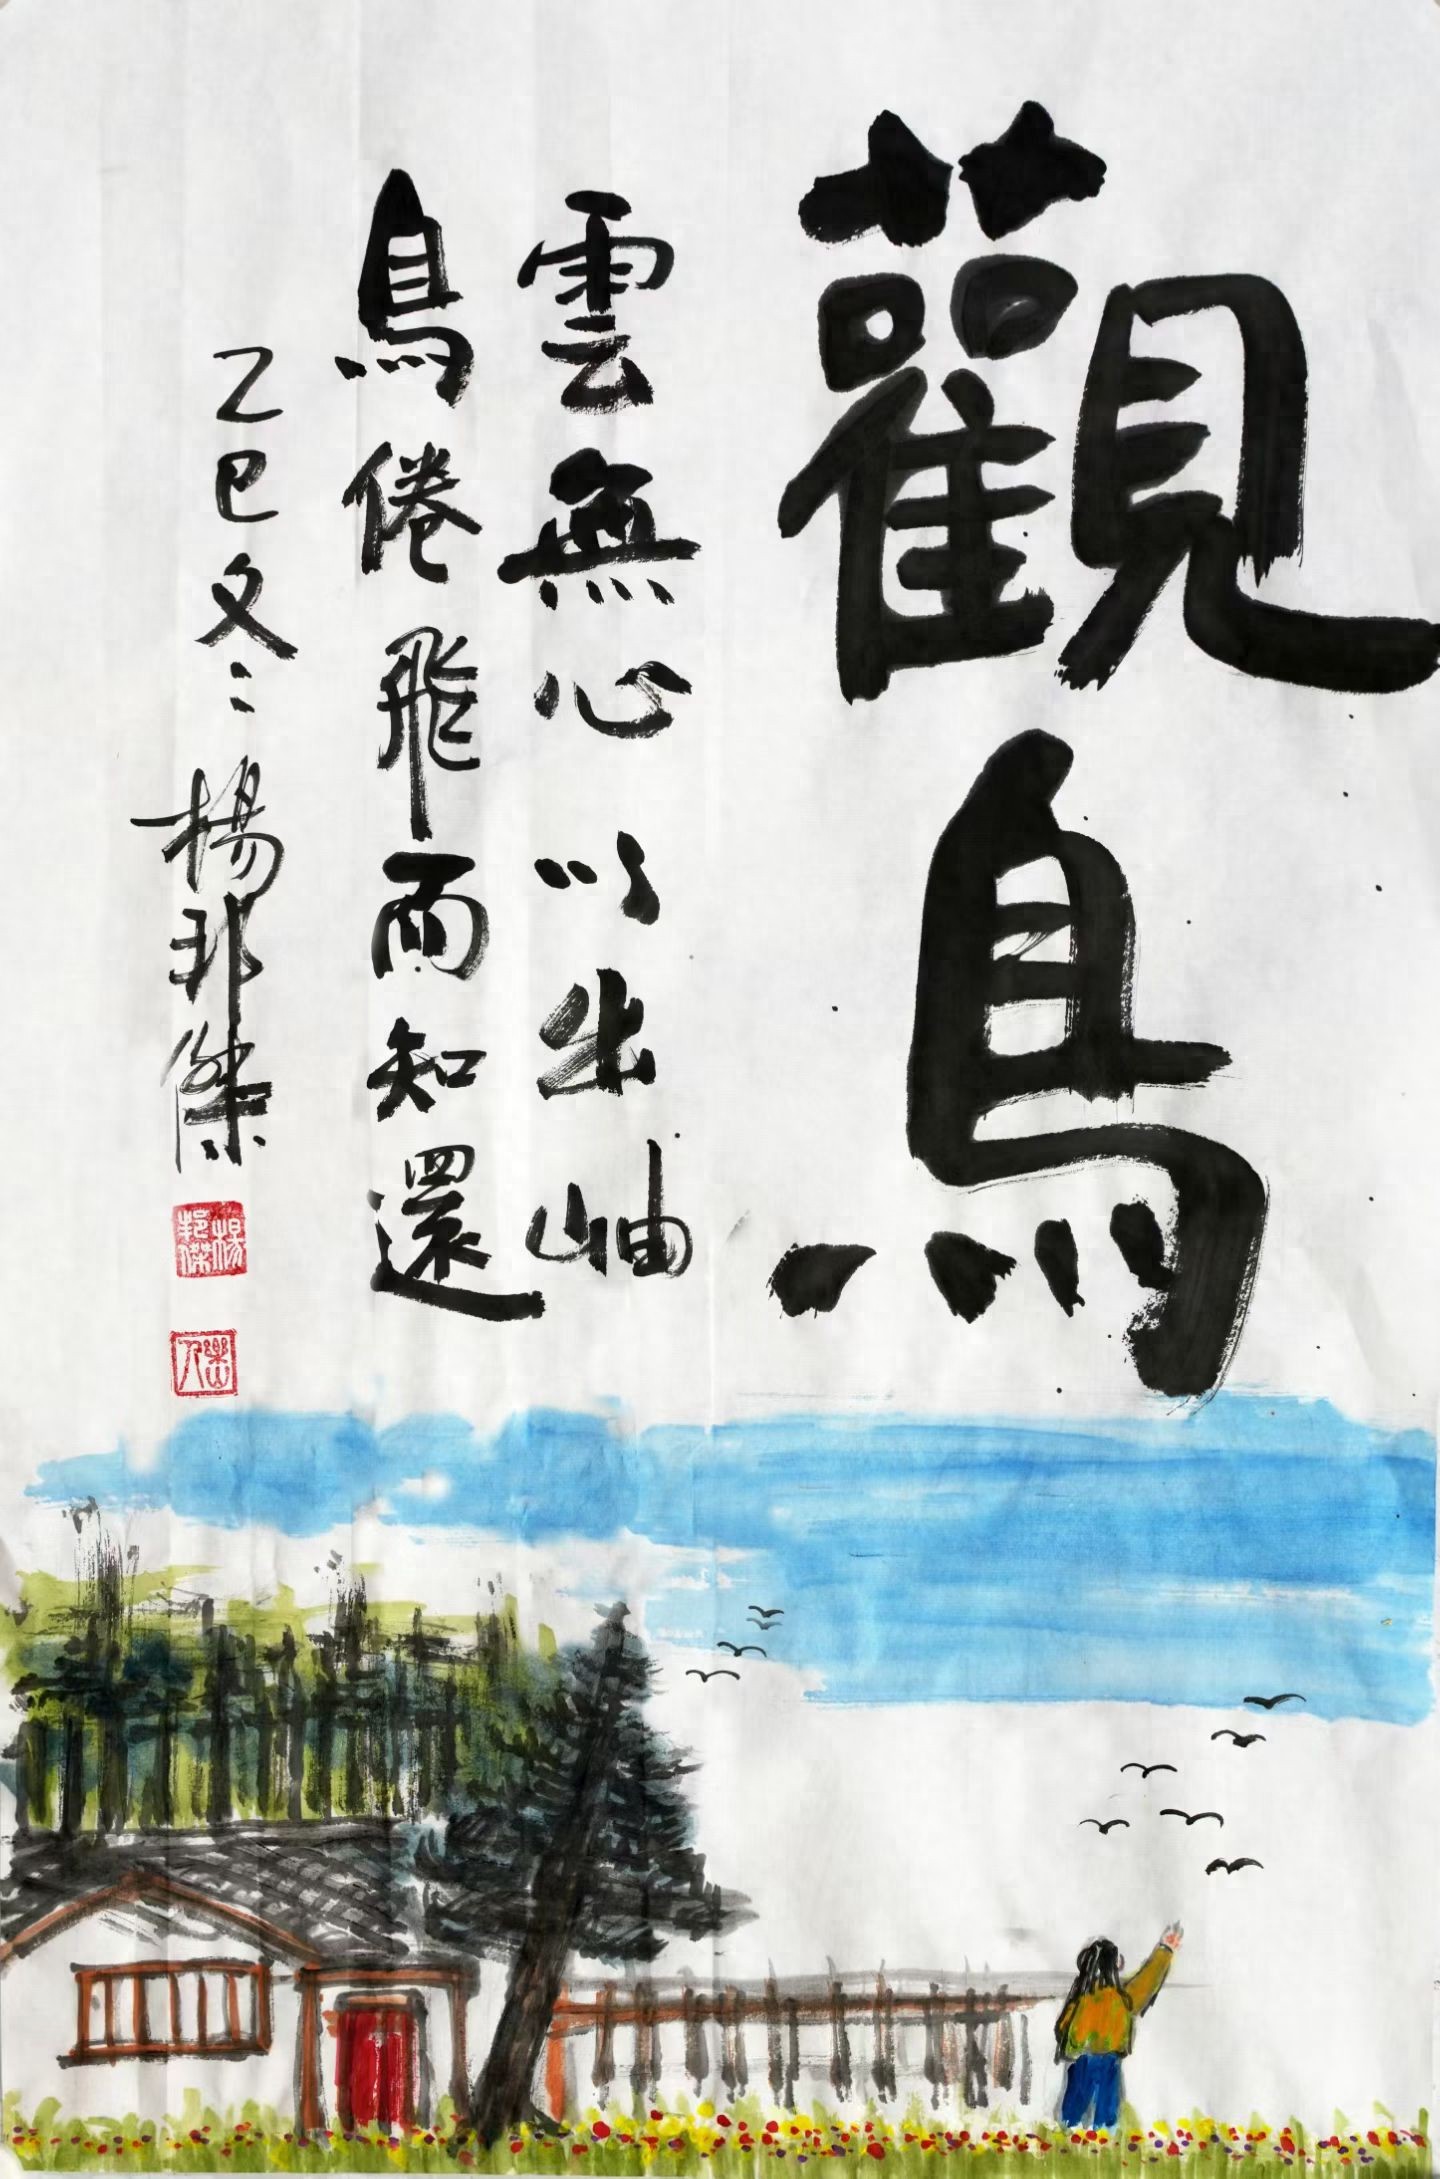 觀鳥
雲無心以出岫
鳥倦飛而知還
乙巳冬 楊邦傑
楊邦傑